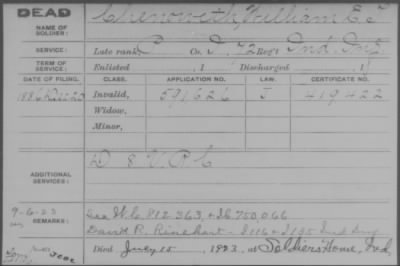 DEAD
NAME OF SOLDIER:
Chenoweth, William E.
SERVICE:
Late rank, Co. 72 Reg't Ind. Inf.
TERM OF SERVICE:
Enlisted , 1 Discharged , 1
DATE OF FILING. CLASS. APPLICATION NO. LAW. CERTIFICATE NO.
1886 Invalid, 591626 J 419422
Widow,
Minor,
ADDITIONAL SERVICES:
D 8 V R C
9-6-23
REMARKS:
See W.C. 812,363, & 750,066
David R. Rinehart - I 116 & I 135 Ind Inf
Died July 15, 1923, at Soldiers Home, Ind.